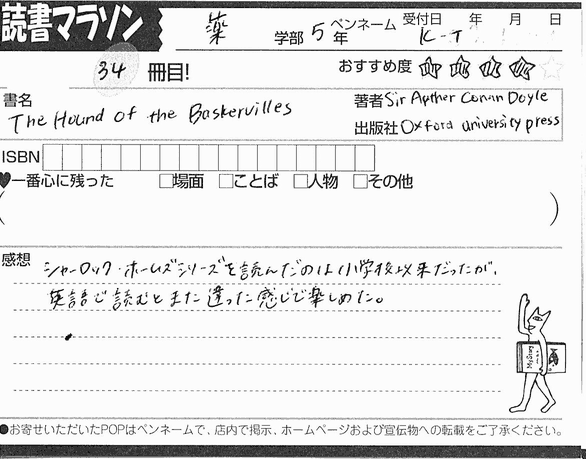 読書マラソン
薬 学部 5年 ペンネーム K-T 受付日 年 月 日
34 冊目!
おすすめ度 ★★★★☆
書名 The Hound of the Baskervilles
著者 Sir Arther Conan Doyle
出版社 Oxford university press
ISBN
♥一番心に残った □場面 □ことば □人物 □その他
( )
感想 シャーロック・ホームズシリーズを読んだのは小学校以来だったが、
英語で読むとまた違った感じで楽しめた。
Mystery
●お寄せいただいたPOPはペンネームで、店内で掲示、ホームページおよび宣伝物への転載をご了承ください。